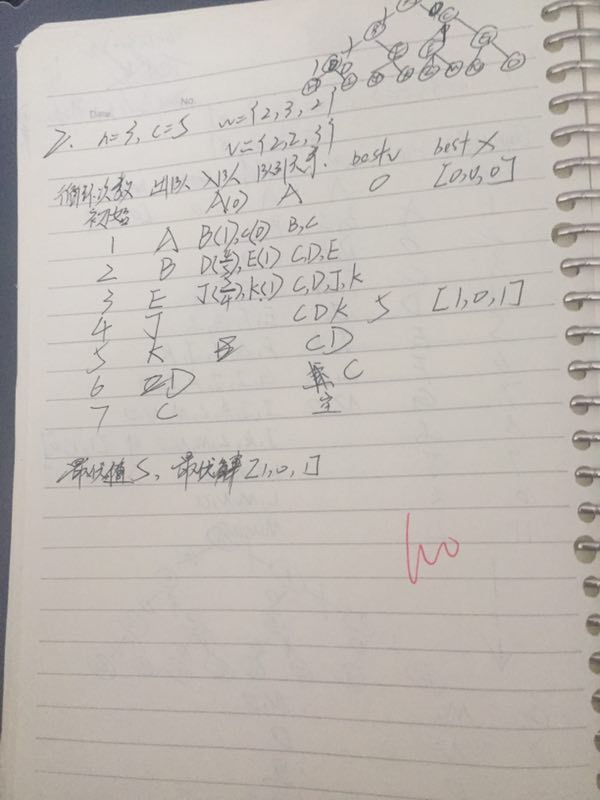 Date. No.
2. n=3, c=5 w={2,3,2}
v={2,2,3}
循环次数 出队 入队 队列关系. bestv best x
初始 A(0) A 0 [0,0,0]
1 A B(1),C(0) B,C
2 B E(1) C,D,E
3 E K(1) C,D,J,K
4 J CDK 5 [1,0,1]
5 K CD
6 D C
7 C 空
最优值5, 最优解[1,0,1]